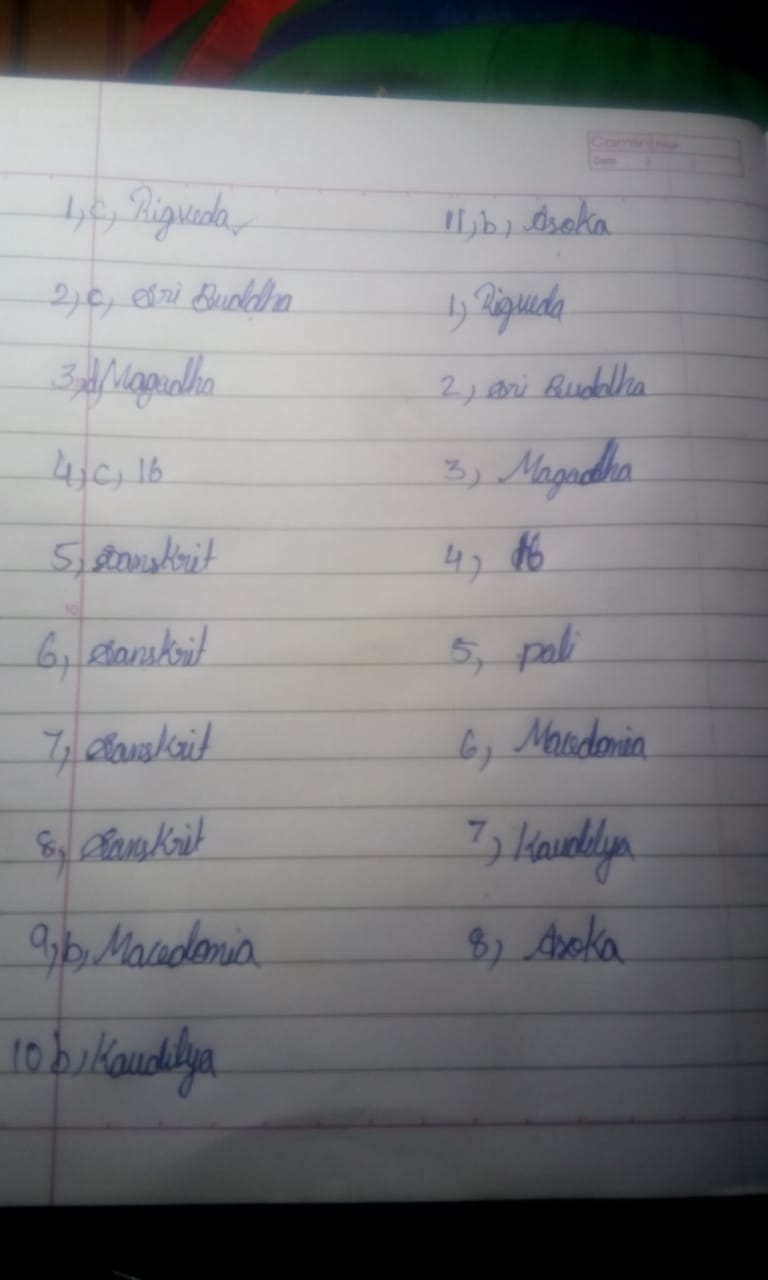 Camlin Page
Date / /
1, c, Rigveda
2, c, Sri Buddha
3, d, Magadha
4, c, 16
5, Sanskrit
10
6, Sanskrit
7, Sanskrit
8, Sanskrit
9, b, Macedonia
10 b, Kaudilya
11, b, Asoka
1) Rigveda
2, Sri Buddha
3, Magadha
4, 16
5, pali
6, Macedonia
7, Kaudilya
8, Asoka